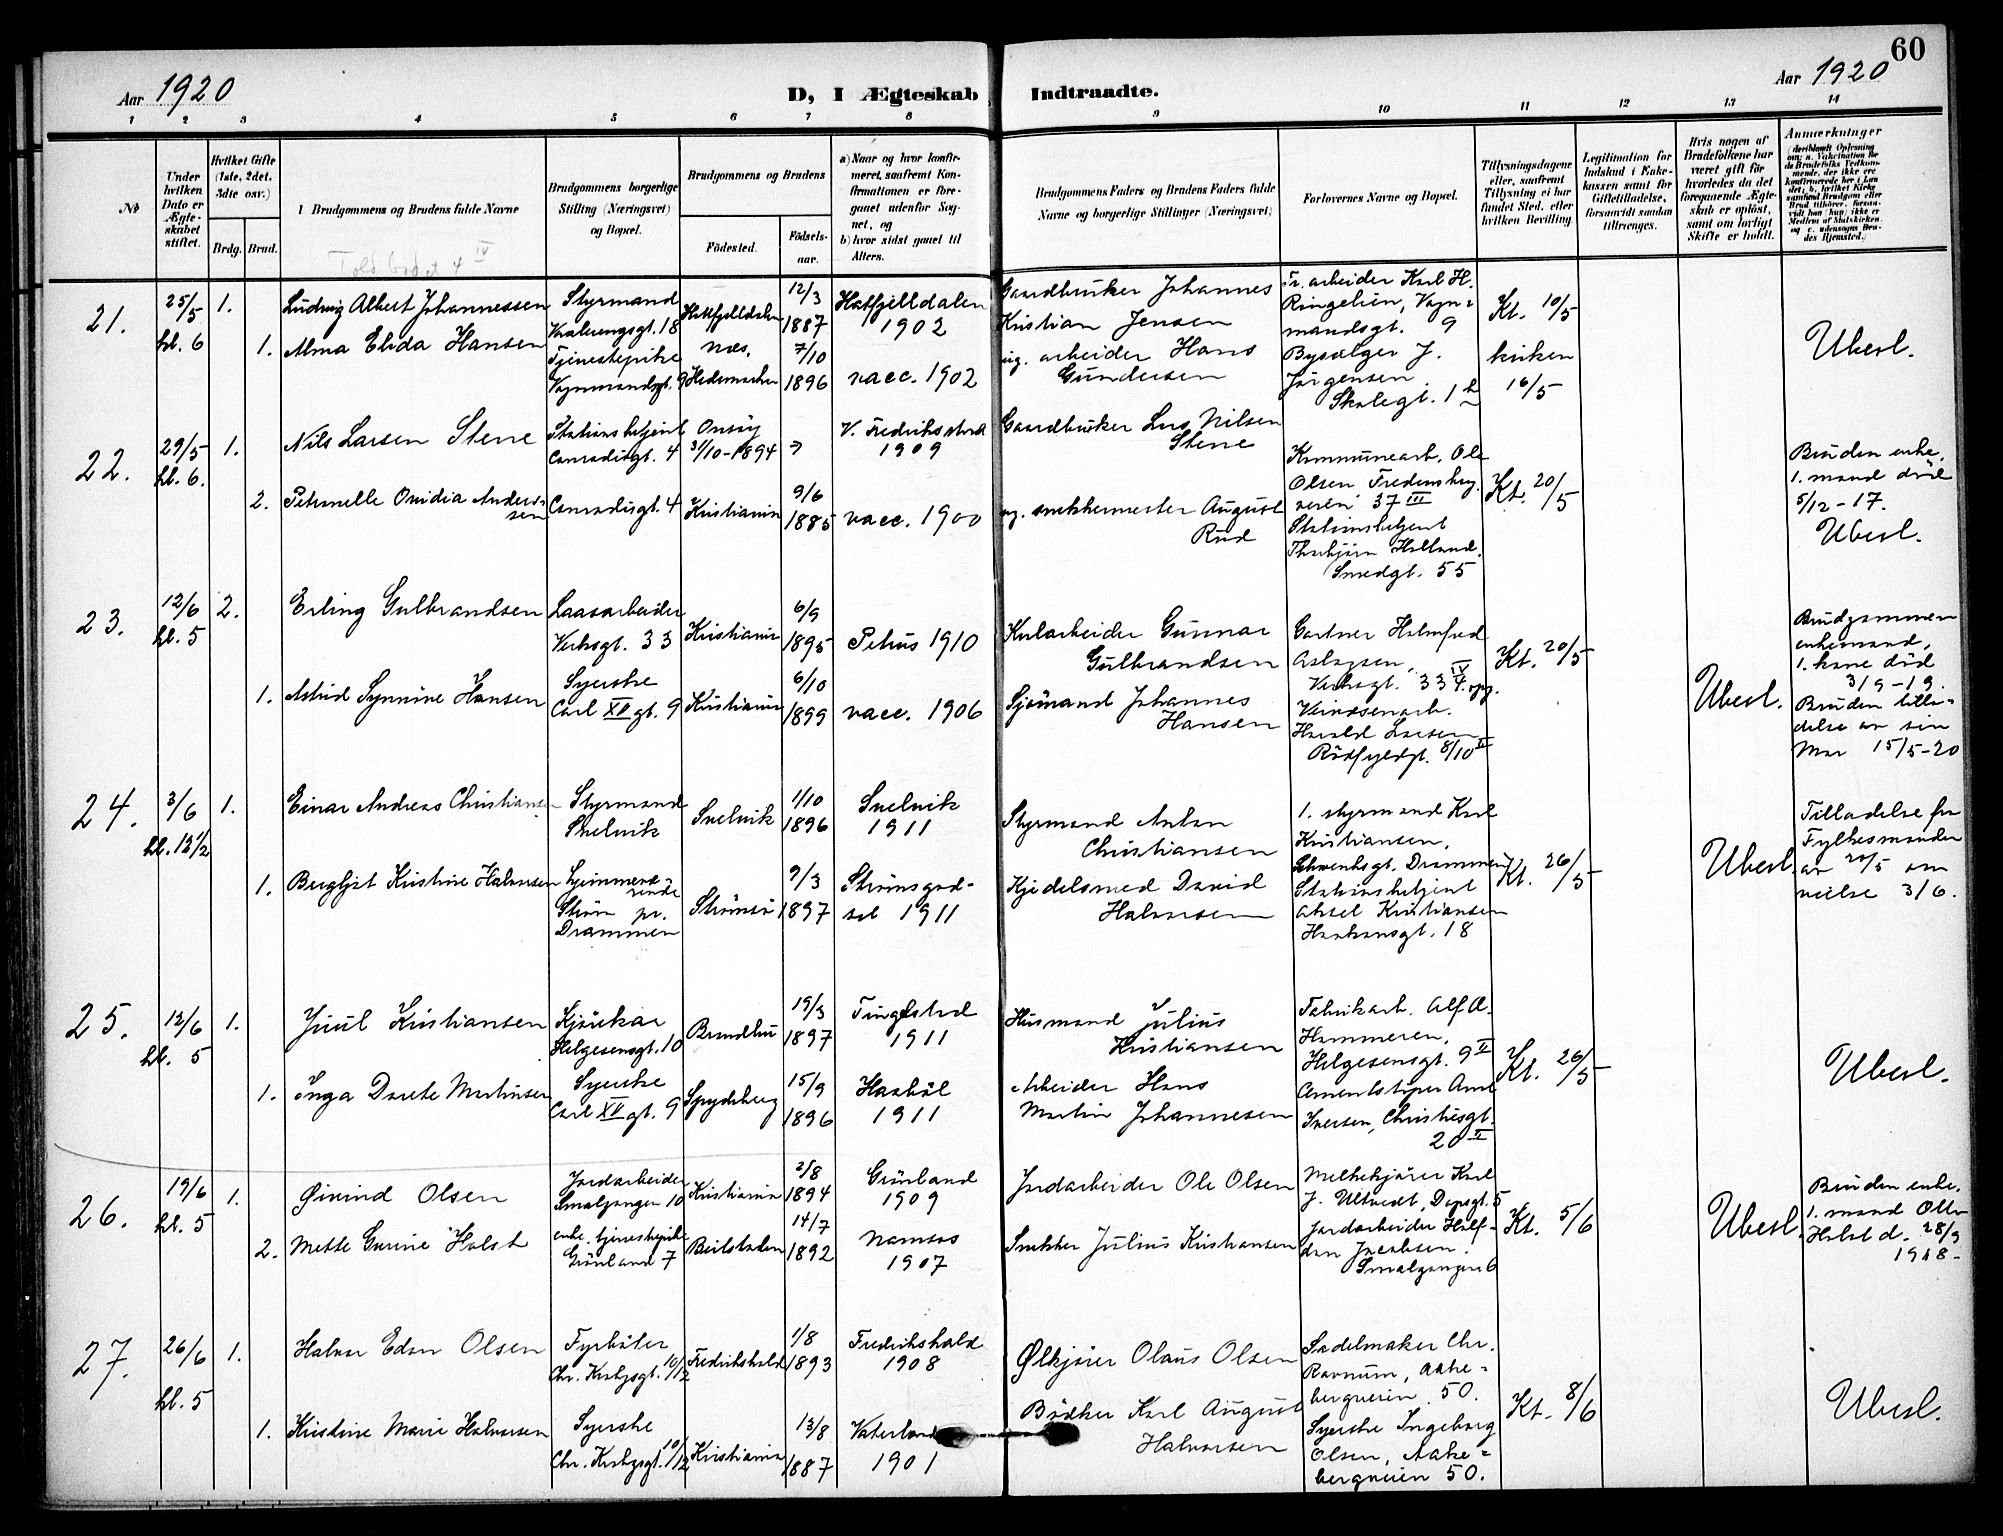 60
Aar 1920
D, I Ægteskab Indtraadte.
Aar 1920
1 2 3 4 5 6 7 8 9 10 11 12 13 14
№
Under hvilken Dato er Ægteskabet stiftet.
Hvilket Gifte (1ste, 2det, 3die osv.)
Brdg. Brud.
Brudgommens og Brudens fulde Navne
Brudgommens borgerlige Stilling (Næringsvei) og Bopæl.
Brudgommens og Brudens
Fødested.
Fødselsaar.
a) Naar og hvor konfirmeret, saafremt Konfirmationen er foregaaet udenfor Sognet, og
b) hvor sidst gaaet til Alters.
Brudgommens Faders og Brudens Faders fulde Navne og borgerlige Stillinger (Næringsvei)
Forlovernes Navne og Bopæl.
Tillysningsdagene eller, saafremt Tillysning ei har fundet Sted, efter hvilken Bevilling.
Legitimation for Indskud i Enkekassen samt for Giftetilladelse, forsaavidt saadan tiltrænges.
Hvis nogen af Brudefolkene har været gift før hvorledes da det foregaaende Ægteskab er opløst, samt om lovligt Skifte er holdt.
Anmærkninger
21.
25/5 kl. 6
1.
Ludvig Albert Johannessen
Styrmand
Vaalerengsgt. 18
Hatfjelldalen
12/3 1887
Hatfjelldalen 1902
Gaardbruker Johannes Kristian Jensen
Fr. arbeider Karl H. Ringelien, Vognmandsgt. 9
Kt. 10/5
Ubesl.
1.
Alma Elida Hansen
Tjenestepike
Vognmandsgt. 9
Næs, Hedemarken
7/10 1896
vacc. 1902
ug. arbeider Hans Gundersen
Bysælger J. Jørgensen
Skolegt. 1 b
kirken 16/5
22.
29/5 kl. 6.
1.
Nils Larsen Stene
Stationsbetjent
Conradisgt. 4
Onsøy
31/10-1894
V. Fredriksstad 1909
Gaardbruker Lars Nilsen Stene
Kommunearb. Ole Olsen Fredensborgveien 37 III
Kt. 20/5
Bruden enke,
1. mand død
5/12-17.
Ubesl.
2.
Petrnelle Ovidia Anderssen
Conradisgt. 4
Kristiania
9/6 1885
vacc. 1900
ug. snekkermester August Rud
Stationsbetjent
Thorbjørn Holland.
Smedgt. 55
23.
12/6 kl. 5
2.
Erling Gulbrandsen
Laasarbeider
Verksgt. 33
Kristiania
6/9 1895
Petrus 1910
Kularbeider Gunnar Gulbrandsen
Gartner Holmfred Aslagsen,
Verksgt. 33 IV 4. opg.
Kt. 20/5
Ubesl.
Brudgommen enkemand,
1. kone død
3/9-19.
Bruden tilladelse av sin
Mor 15/5-20
1.
Astrid Synnine Hansen
Syerske
Carl XII gt. 9
Kristiania
6/10 1899
vacc. 1906
Sjømand Johannes Hansen
Harald Larsen
Rødfyldgt. 8/10 II
24.
3/6 kl. 12 1/2
1.
Einar Andreas Christiansen
Styrmand
Svelvik
Svelvik
1/10 1896
Svelvik 1911
Styrmand Anton Christiansen
1. styrmand Karl Kristiansen,
Schwenksgt. Drammen
Kt. 26/5
Ubesl.
Tilladelse fra
Fylkesmanden
av 20/5 om
vielse 3/6.
1.
Bergljot Kristine Halvorsen
hjemmeværende
Strøm pr. Drammen
Strømsø
9/3 1897
Strømsgodset 1911
Kjedelsmed David Halvorsen
Stationsbetjent
Aksel Kristiansen
Haakonsgt. 18
25.
12/6 kl. 5
1.
Juul Kristiansen
Kjørekar
Helgesensgt. 10
Brandbu
19/3 1897
Tingelstad 1911
Husmand Julius Kristiansen
Fabrikarb. Alf A. Hammeren,
Helgesensgt. 9 II
Kt. 26/5
Ubesl.
1.
Inga Dorte Martinsen
Syerske
Carl XII gt. 9
Spydeberg
15/9 1896
Haabøl 1911
Arbeider Hans Martin Johannesen
Iversen, Christiesgt. 20 II
26.
19/6 kl. 5
1.
Øivind Olsen
Jordarbeider
Smalgangen 10
Kristiania
2/8 1894
Grønland 1909
Jordarbeider Ole Olsen
Melkekjører Karl J. Ultvedt, Dopsgt. 5
Kt. 5/6
Ubesl.
Bruden enke.
1. mand Otto
Holst d. 28/9
1918-
2.
Mette Gurine Holst
enke, tjenestepike
Grønland 7
Beitstaden
14/7 1892
Namsos 1907
Snekker Julius Kristiansen
Jordarbeider Halfdan Jacobsen.
Smalgangen 6
27.
26/6 kl. 5
1.
Halvor Edon Olsen
Fyrbøter
Chr. Krohgsgt. 10/12
Fredrikshald
1/8 1893
Fredrikshald 1908
Ølkjører Olaus Olsen
Sadelmaker Chr. Ravnum, Aakebergveien 50.
Kt. 8/6
Ubesl.
1.
Kristine Marie Halvorsen
Syerske
Chr. Krohgsgt. 10/12
Kristiania
13/8 1887
Vaterland 1901
Bødker Karl August Halvorsen
Syerske Ingeborg Olsen, Aakebergveien 50.